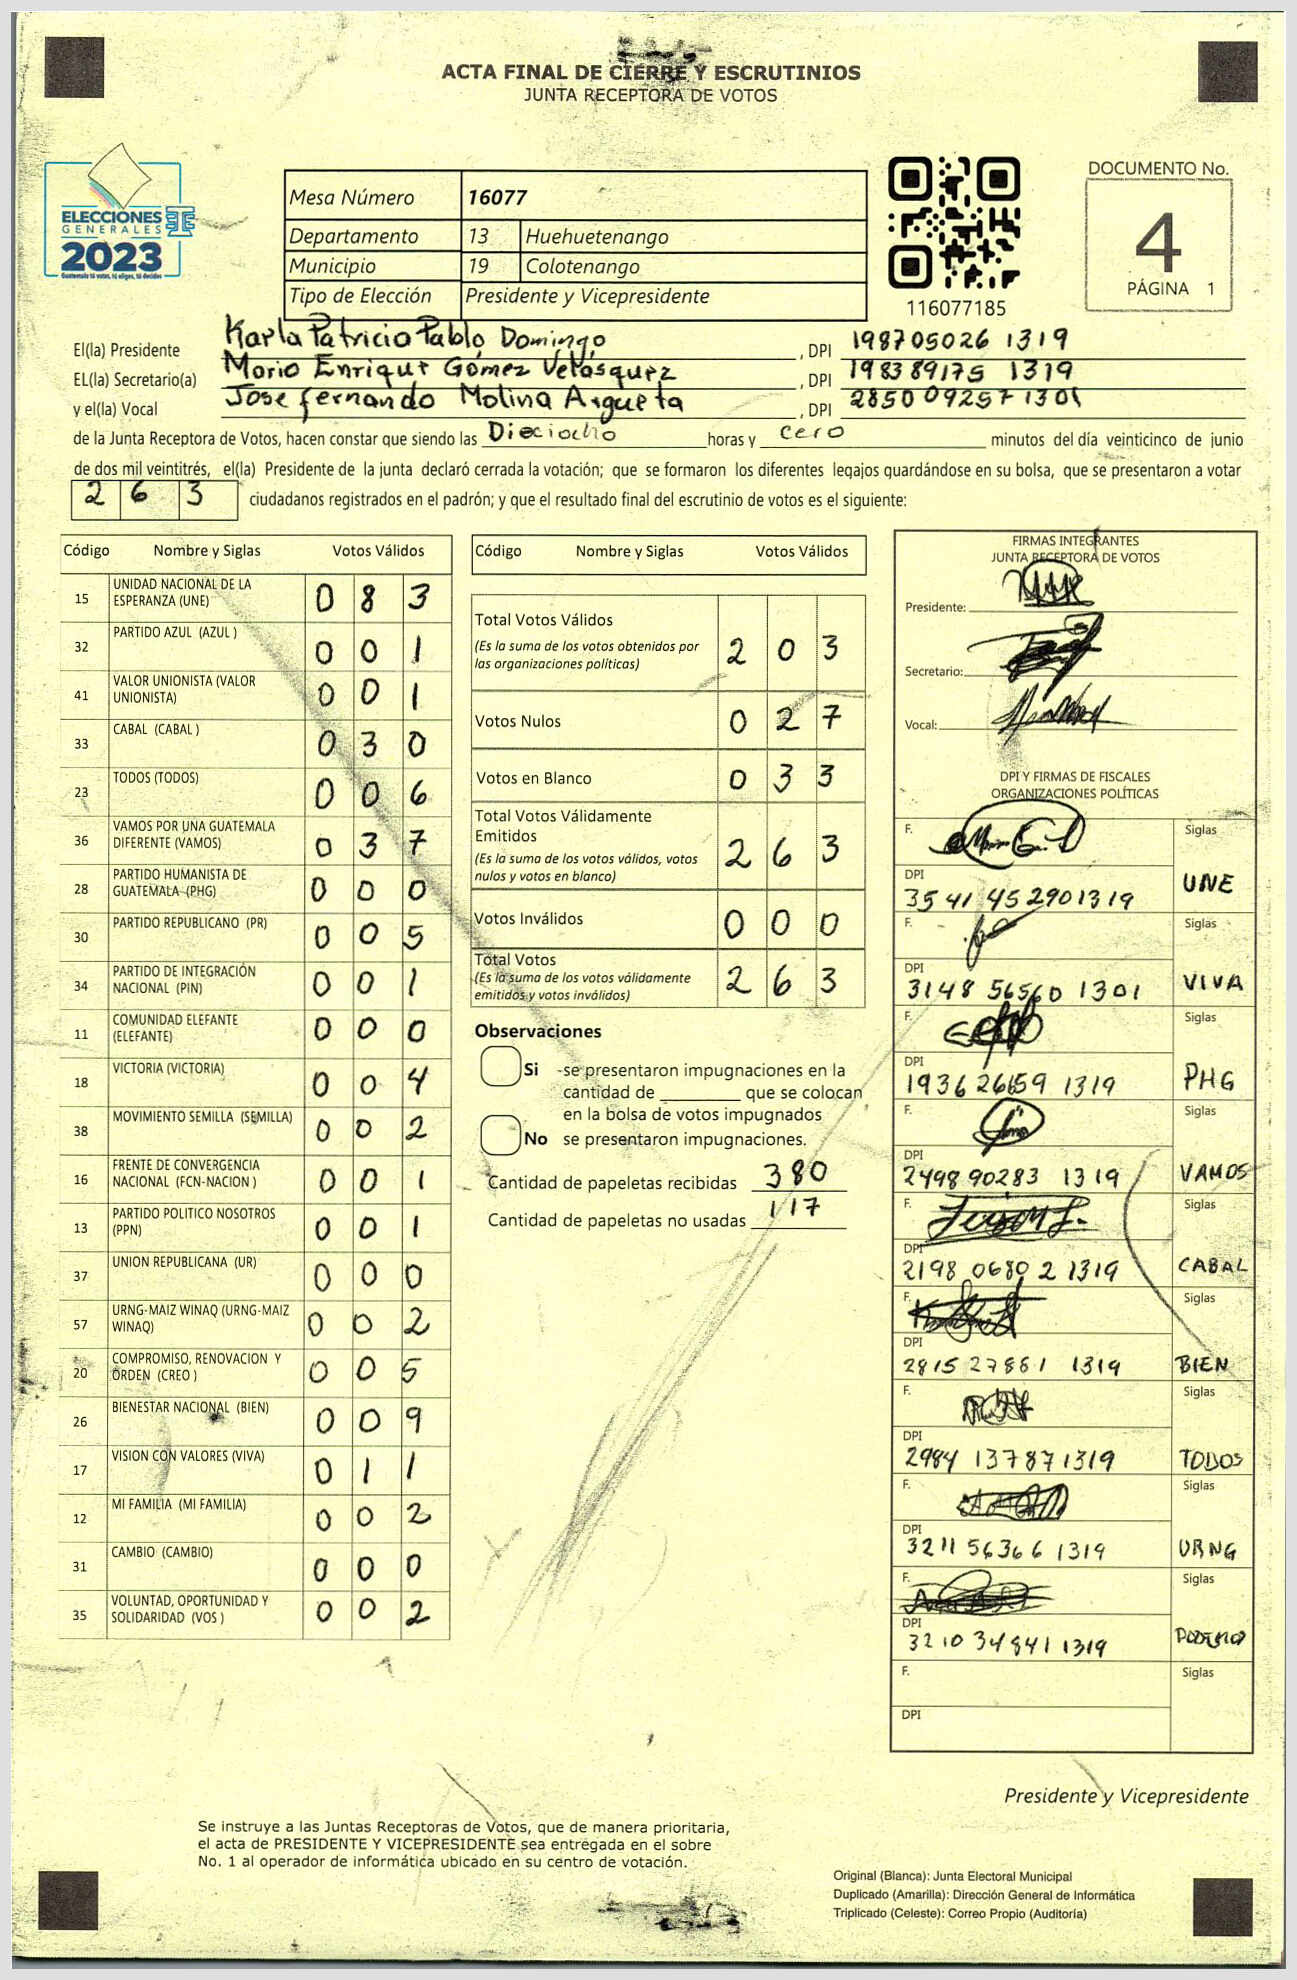 ACTA FINAL DE CIERRE Y ESCRUTINIOS
JUNTA RECEPTORA DE VOTOS
ELECCIONES
GENERALES
2023
Guatemala tú votas, tú eliges, tú decides
Mesa Número 16077
Departamento 13 Huehuetenango
Municipio 19 Colotenango
Tipo de Elección Presidente y Vicepresidente
116077185
DOCUMENTO No.
4
PÁGINA 1
El(la) Presidente Karla Patricia Pablo Domingo, DPI 198705026 1319
EL(la) Secretario(a) Mario Enrique Gómez Velasquez, DPI 198389175 1319
y el(la) Vocal Jose fernando Molina Argueta, DPI 285009257 1301
de la Junta Receptora de Votos, hacen constar que siendo las Dieciocho horas y cero minutos del día veinticinco de junio
de dos mil veintitrés, el(la) Presidente de la junta declaró cerrada la votación; que se formaron los diferentes legajos guardándose en su bolsa, que se presentaron a votar
2 6 3 ciudadanos registrados en el padrón; y que el resultado final del escrutinio de votos es el siguiente:
Código Nombre y Siglas Votos Válidos
15 UNIDAD NACIONAL DE LA ESPERANZA (UNE) 0 8 3
32 PARTIDO AZUL (AZUL ) 0 0 1
41 VALOR UNIONISTA (VALOR UNIONISTA) 0 0 1
33 CABAL (CABAL ) 0 3 0
23 TODOS (TODOS) 0 0 6
36 VAMOS POR UNA GUATEMALA DIFERENTE (VAMOS) 0 3 7
28 PARTIDO HUMANISTA DE GUATEMALA (PHG) 0 0 0
30 PARTIDO REPUBLICANO (PR) 0 0 5
34 PARTIDO DE INTEGRACIÓN NACIONAL (PIN) 0 0 1
11 COMUNIDAD ELEFANTE (ELEFANTE) 0 0 0
18 VICTORIA (VICTORIA) 0 0 4
38 MOVIMIENTO SEMILLA (SEMILLA) 0 0 2
16 FRENTE DE CONVERGENCIA NACIONAL (FCN-NACION ) 0 0 1
13 PARTIDO POLITICO NOSOTROS (PPN) 0 0 1
37 UNION REPUBLICANA (UR) 0 0 0
57 URNG-MAIZ WINAQ (URNG-MAIZ WINAQ) 0 0 2
20 COMPROMISO, RENOVACION Y ORDEN (CREO ) 0 0 5
26 BIENESTAR NACIONAL (BIEN) 0 0 9
17 VISION CON VALORES (VIVA) 0 1 1
12 MI FAMILIA (MI FAMILIA) 0 0 2
31 CAMBIO (CAMBIO) 0 0 0
35 VOLUNTAD, OPORTUNIDAD Y SOLIDARIDAD (VOS ) 0 0 2
Código Nombre y Siglas Votos Válidos
Total Votos Válidos 2 0 3
(Es la suma de los votos obtenidos por
las organizaciones políticas)
Votos Nulos 0 2 7
Votos en Blanco 0 3 3
Total Votos Válidamente
Emitidos 2 6 3
(Es la suma de los votos válidos, votos
nulos y votos en blanco)
Votos Inválidos 0 0 0
Total Votos 2 6 3
(Es la suma de los votos válidamente
emitidos y votos inválidos)
Observaciones
Si -se presentaron impugnaciones en la
cantidad de ________ que se colocan
en la bolsa de votos impugnados
No se presentaron impugnaciones.
Cantidad de papeletas recibidas 380
Cantidad de papeletas no usadas 117
FIRMAS INTEGRANTES
JUNTA RECEPTORA DE VOTOS
Presidente:
Secretario:
Vocal:
DPI Y FIRMAS DE FISCALES
ORGANIZACIONES POLÍTICAS
F. Siglas
DPI 3541 45290 1319 UNE
F. Siglas
DPI 3148 56560 1301 VIVA
F. Siglas
DPI 1936 26159 1319 PHG
F. Siglas
DPI 2498 90283 1319 VAMOS
F. Siglas
DPI 2198 0680 2 1319 CABAL
F. Siglas
DPI 2815 27881 1319 BIEN
F. Siglas
DPI 2984 13787 1319 TODOS
F. Siglas
DPI 3211 56366 1319 URNG
F. Siglas
DPI 3210 34841 1319 PODEMOS
F. Siglas
DPI
Presidente y Vicepresidente
Se instruye a las Juntas Receptoras de Votos, que de manera prioritaria,
el acta de PRESIDENTE Y VICEPRESIDENTE sea entregada en el sobre
No. 1 al operador de informática ubicado en su centro de votación.
Original (Blanca): Junta Electoral Municipal
Duplicado (Amarilla): Dirección General de Informática
Triplicado (Celeste): Correo Propio (Auditoría)